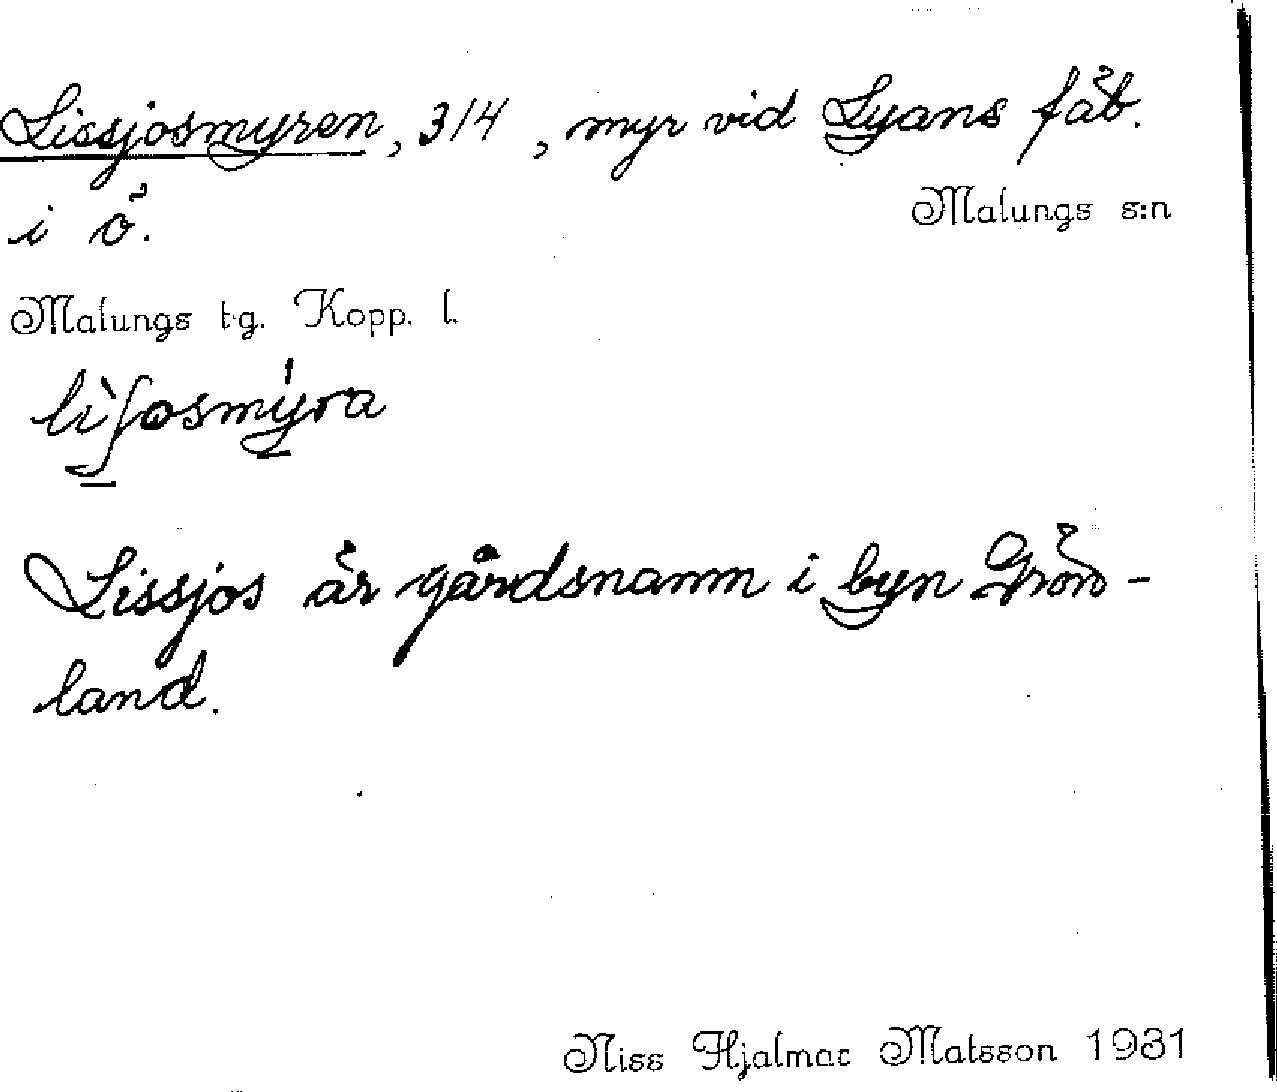 Lissjosmyren, 3/4, myr vid Lyans fäb.
i ö.
Malungs s:n
Malungs tg. Kopp. l.
lìʃosmy̌ra
Lissjos är gårdsnamn i byn Grön-
land.
Niss Hjalmar Matsson 1931